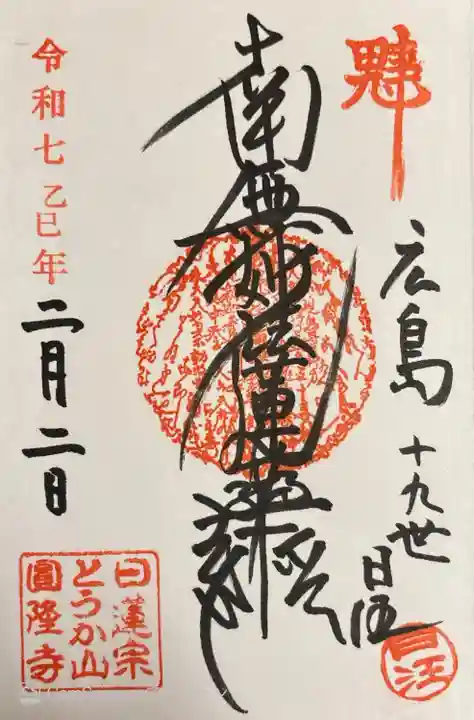 広島
十九世
日
南無妙法蓮華経
令和七乙巳年
二月二日
日蓮宗
とうか山
圓隆寺